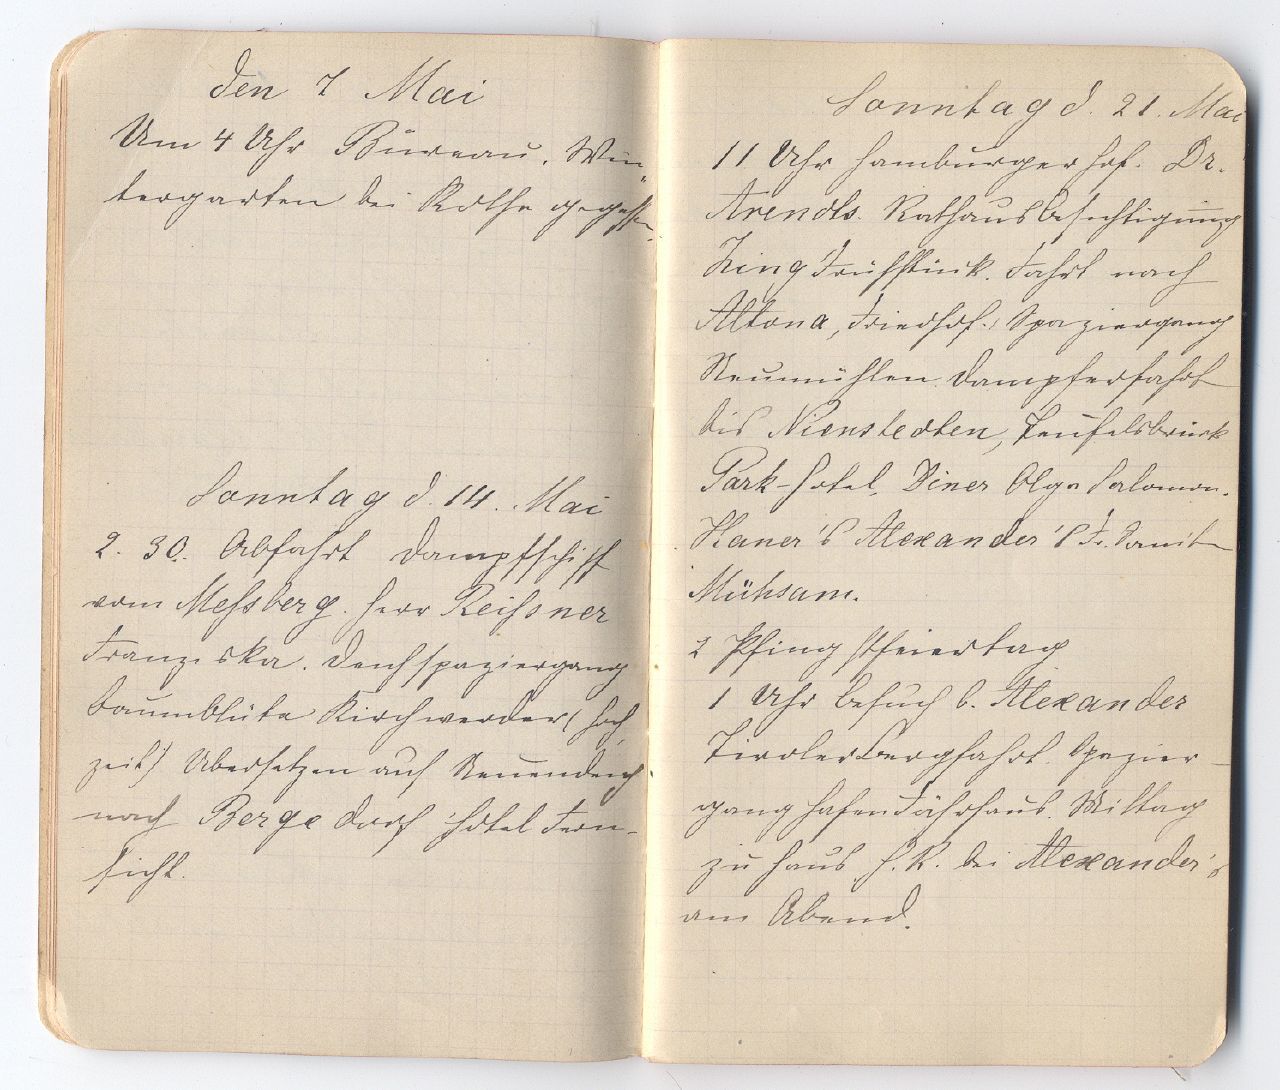 Den 7 Mai
Um 4 Uhr Büreau. Win-
tergarten bei Rothe gegessen.
Sonntag d. 14. Mai
2.30. Abfahrt Dampfschiff
vom Messberg. Herr Reissner
Franziska. Deichspaziergang
Baumblüte Kirchwerder (Hoch
zeit) Übersetzen auf Neuendeich
nach Bergedorf Hotel Fern-
sicht.
Sonntag d. 21. Mai
11 Uhr Hamburgerhof. Dr.
Arendts. Rathausbesichtigung
Frühstück. Fahrt nach
Altona, Friedhof. Spaziergang
Neumühlen Dampferfahrt
bis Nienstedten, Teufelsbrück
Park-Hotel, Diner Olga Salomon.
Alexander's Fr.
Mühsam.
2 Pfingstfeiertag
1 Uhr Besuch b. Alexander
Tiroler Bergfahrt. Spazier-
gang Hafen Fährhaus. Mittag
zu Haus H. R. bei Alexander's
am Abend.